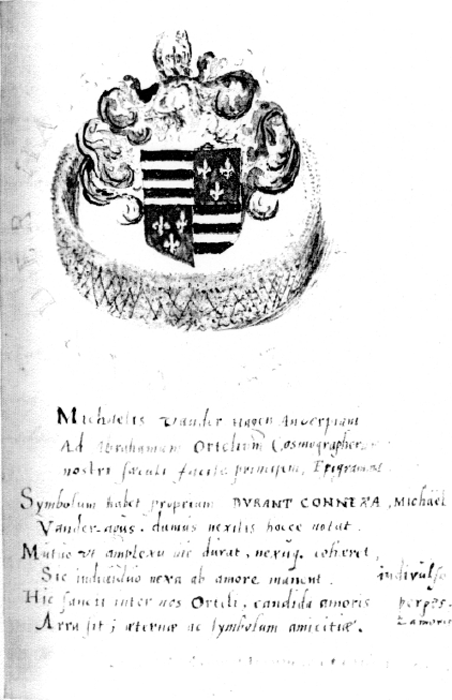 Michaelis Vander Hagen Anverpiani
Ad Abrahamum Ortelium Cosmographor
nostri sæculi facile principem, Epigramma.
Symbolum habet proprium DVRANT CONNEXA, Michäel
Vander-agus. dumus nexilis hocce notat.
Mutuo ut amplexu hic durat, nexuq. cohæret,
Sic indiuiduo nexa ab amore manent. indivulso
Hic sancti inter nos Orteli, candida amoris perpes.
Arra sit; æternæ ac symbolum amicitiæ. amoris